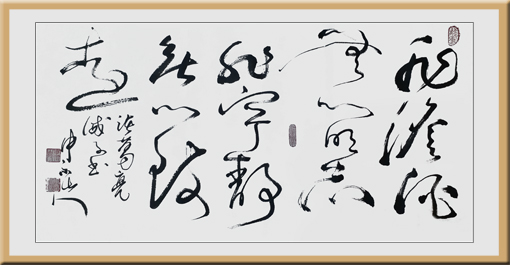 非澹泊
無以明志
非宁靜
無以致
遠
諸葛亮
誡子書